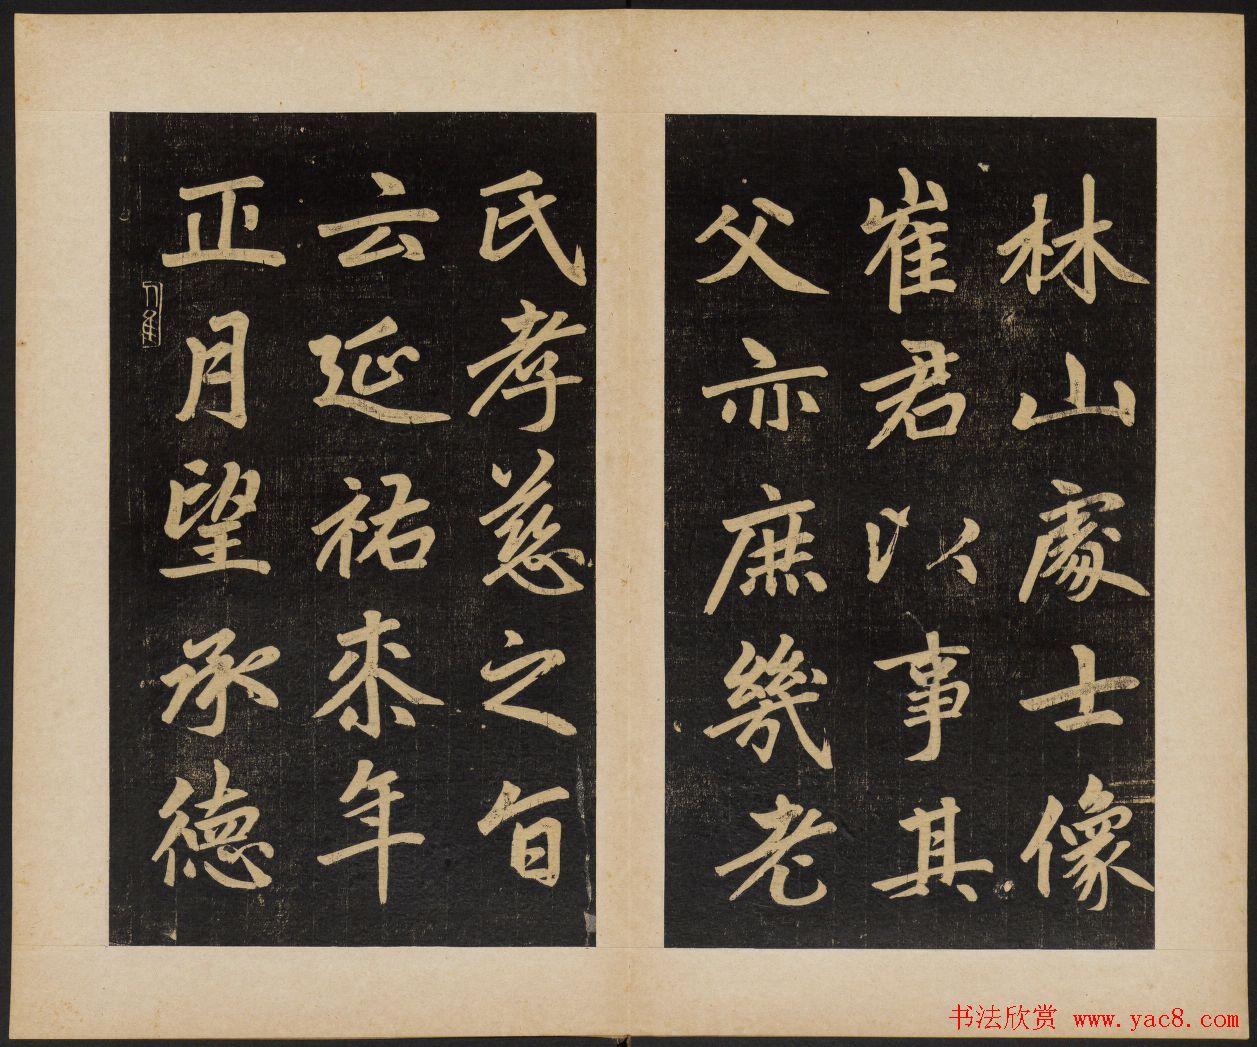 林山處士像
崔君以事其
父亦庶幾老
氏孝慈之旨
云延祐來年
正月望承德
书法欣赏 www.yac8.com